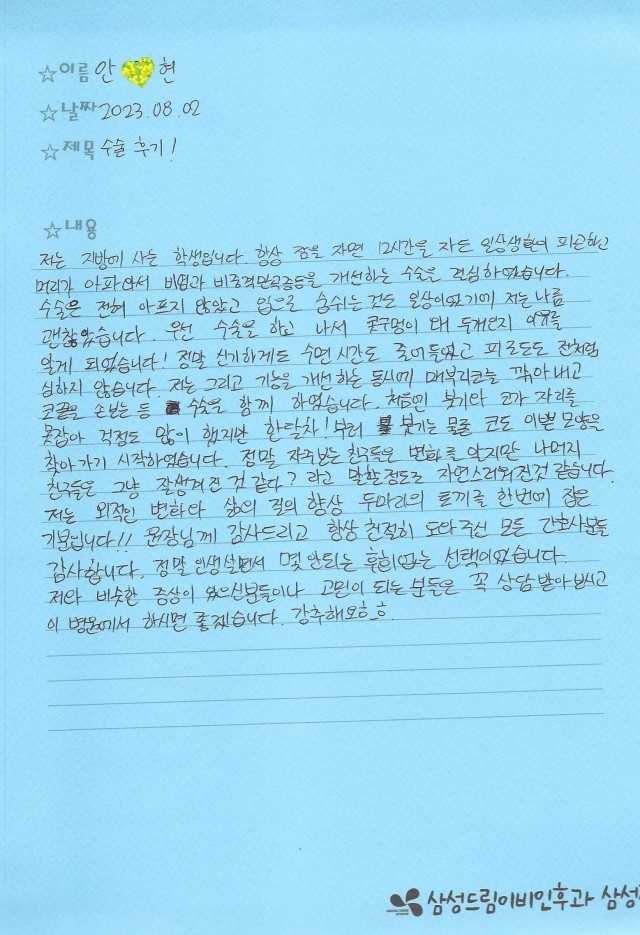 ☆이름 안 현
☆날짜 2023.08.02
☆제목 수술 후기!
☆내용
저는 지방에 사는 학생입니다. 항상 잠을 자면 12시간을 자도 일상생활이 피곤하고
머리가 아파와서 비염과 비중격만곡증등을 개선하는 수술을 결심하였습니다.
수술은 전혀 아프지 않았고 입으로 숨쉬는것도 일상이였기에 저는 나름
괜찮았습니다. 우선 수술을 하고 나서 콧구멍이 왜 두개인지 이유를
알게 되었습니다! 정말 신기하게도 수면 시간도 줄어들었고 피로도도 전처럼
심하지 않습니다. 저는 그리고 기능을 개선하는 동시에 매부리코를 깎아내고
코끝을 손보는 등 수술을 함께 하였습니다. 처음엔 붓기와 코가 자리를
못잡아 걱정도 많이 했지만 한달차! 부터 붓기는 물론 코도 이쁜 모양을
찾아가기 시작하였습니다. 정말 자주보는 친구들은 변화를 알지만 나머지
친구들은 그냥 잘생겨진 것 같다? 라고 말할 정도로 자연스러워진것 같습니다.
저는 외적인 변화와 삶의 질의 향상 두마리의 토끼를 한번에 잡은
기분입니다!! 원장님께 감사드리고 항상 친절히 도와주신 모든 간호사분들
감사합니다. 정말 인생살면서 몇 안되는 후회없는 선택이였습니다.
저와 비슷한 증상이 있으신분들이나 고민이 되는 분들은 꼭 상담 받아보시고
이 병원에서 하시면 좋겠습니다. 강추해요ㅎ_ㅎ
삼성드림이비인후과 삼성